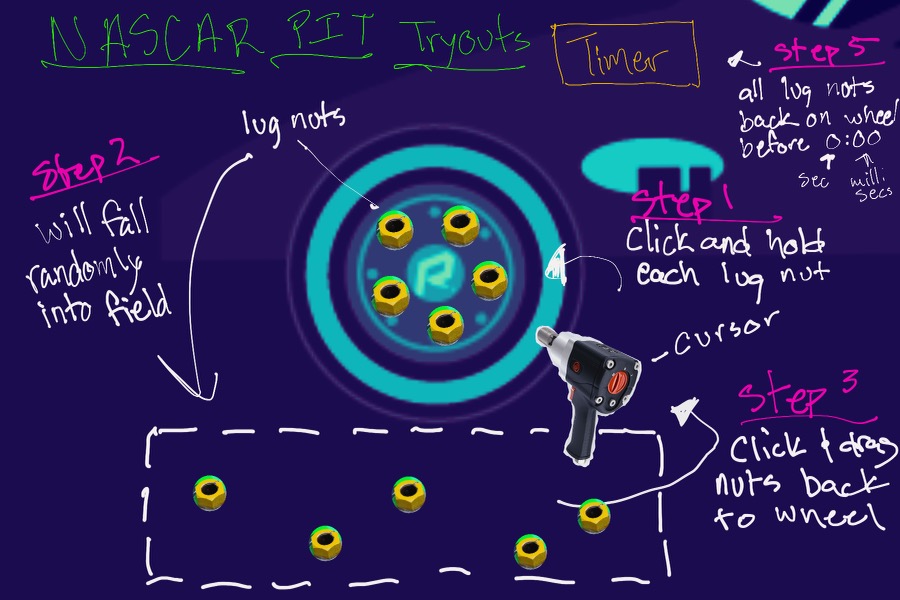 NASCAR PIT Tryouts
Timer
Step 5
all lug nots
back on wheel
before 0:00
sec milli
secs
lug nuts
Step 2
will fall
randomly
into field
Step 1
Click and hold
each lug nut
R
cursor
Step 3
Click & drag
nuts back
to wheel